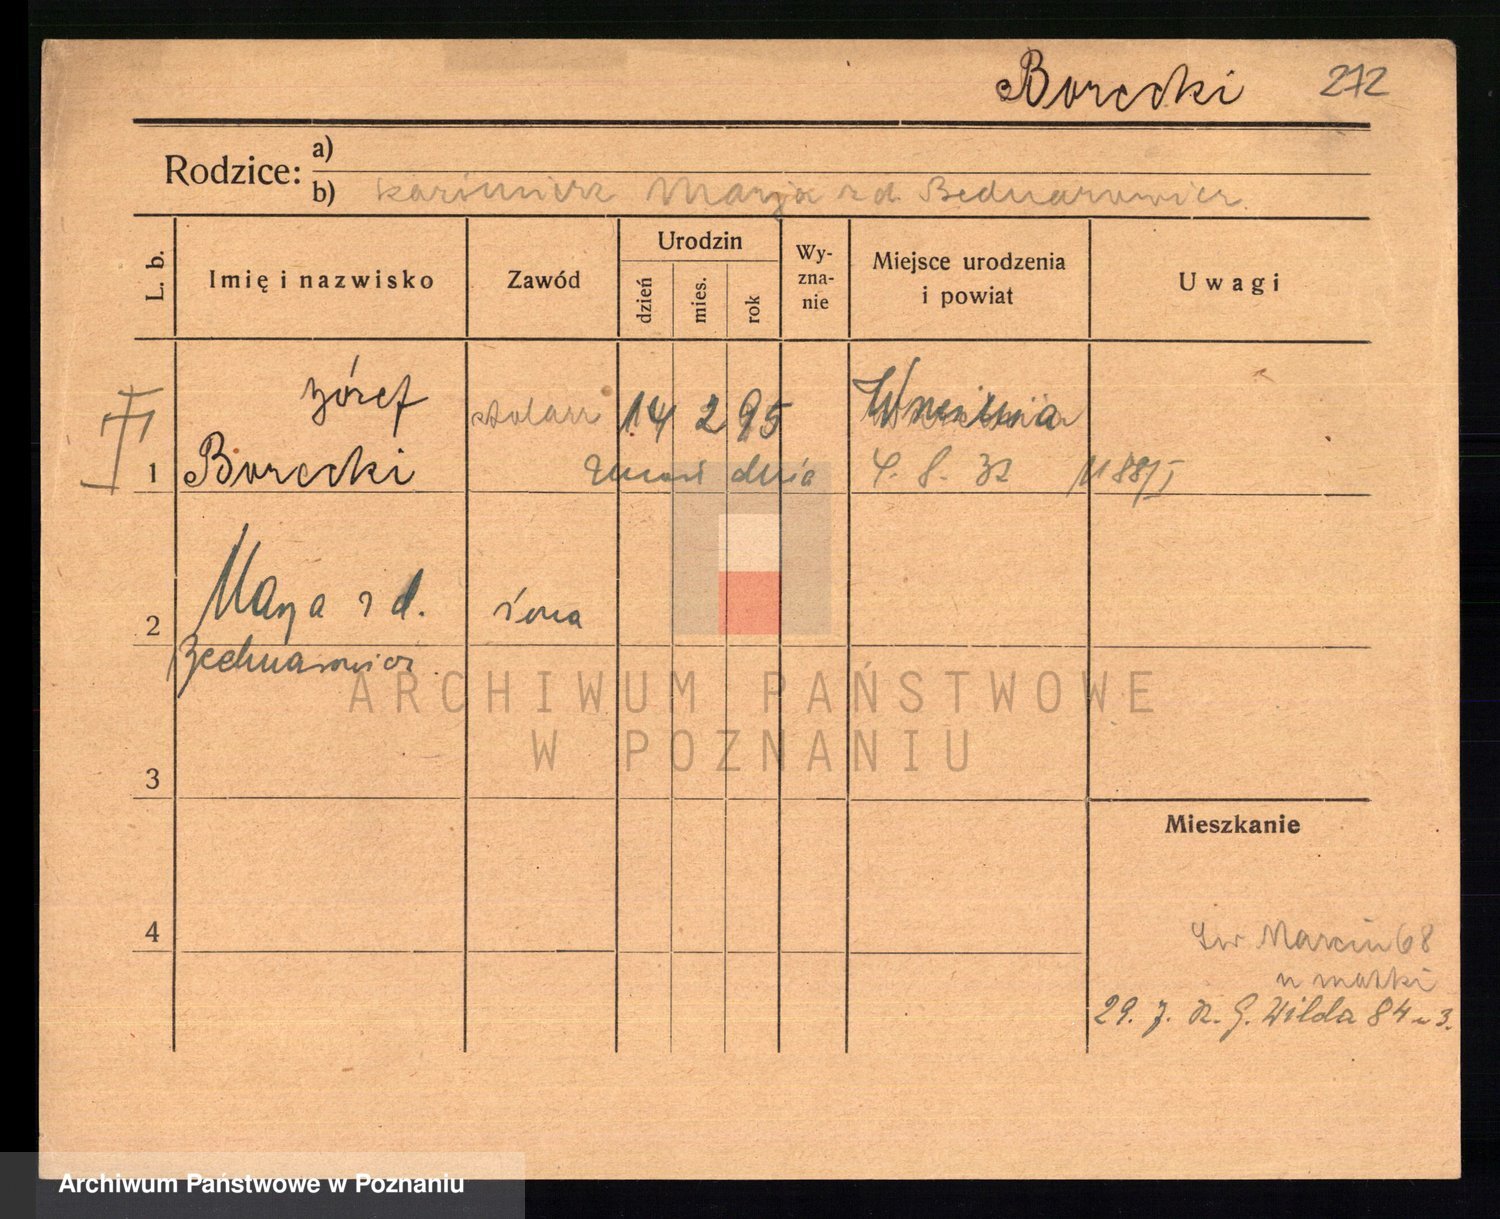 Borecki 272
Rodzice: a)
b) Kazimierz Marja zd. Bednarowicz
L. b. Imię i nazwisko Zawód Urodzin dzień mies. rok Wy-zna-nie Miejsce urodzenia i powiat Uwagi
Józef stolarz 14 2 95 Września
1 Borecki Zmarł dnia 4. 8. 32 1188/I
2 Marja zd. żona
Bednarowicz
ARCHIWUM PAŃSTWOWE
W POZNANIU
3
Mieszkanie
4
Św Marcin 68
u matki
29. 7. G. Wilda 84 3.
Archiwum Państwowe w Poznaniu